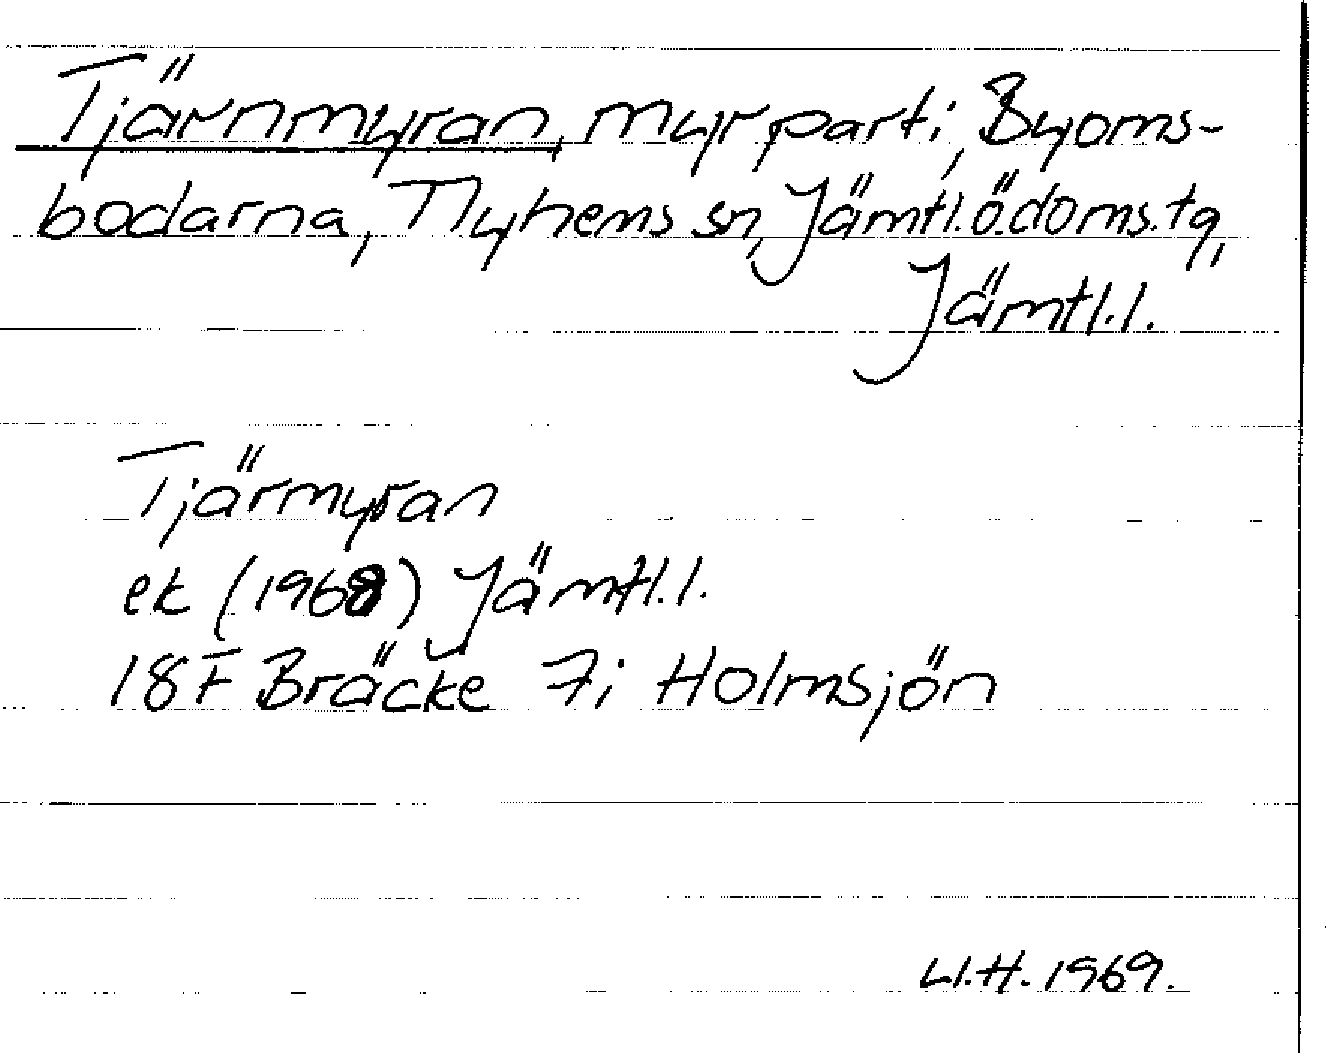 Tjärnmyran, myrparti, Byoms-
bodarna, Nyhems sn, Jämtl.ö.doms.tg,
Jämtl.l.
Tjärmyran
ek (1968) Jämtl.l.
18F Bräcke 7i Holmsjön
U.H. 1969.